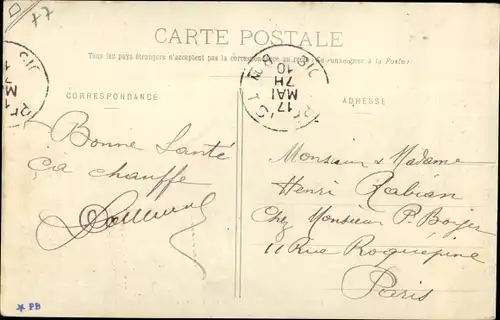 77
CARTE POSTALE
Tous les pays étrangers n'acceptent pas la correspondance au recto (Se renseigner à la Poste)
CORRESPONDANCE
ADRESSE
17
MAI
7H
10
Bonne Santé
ça chauffe
Monsieur & Madame
Henri Rabian
Chez Monsieur P. Boyer
11 Rue Roquépine
Paris
PB